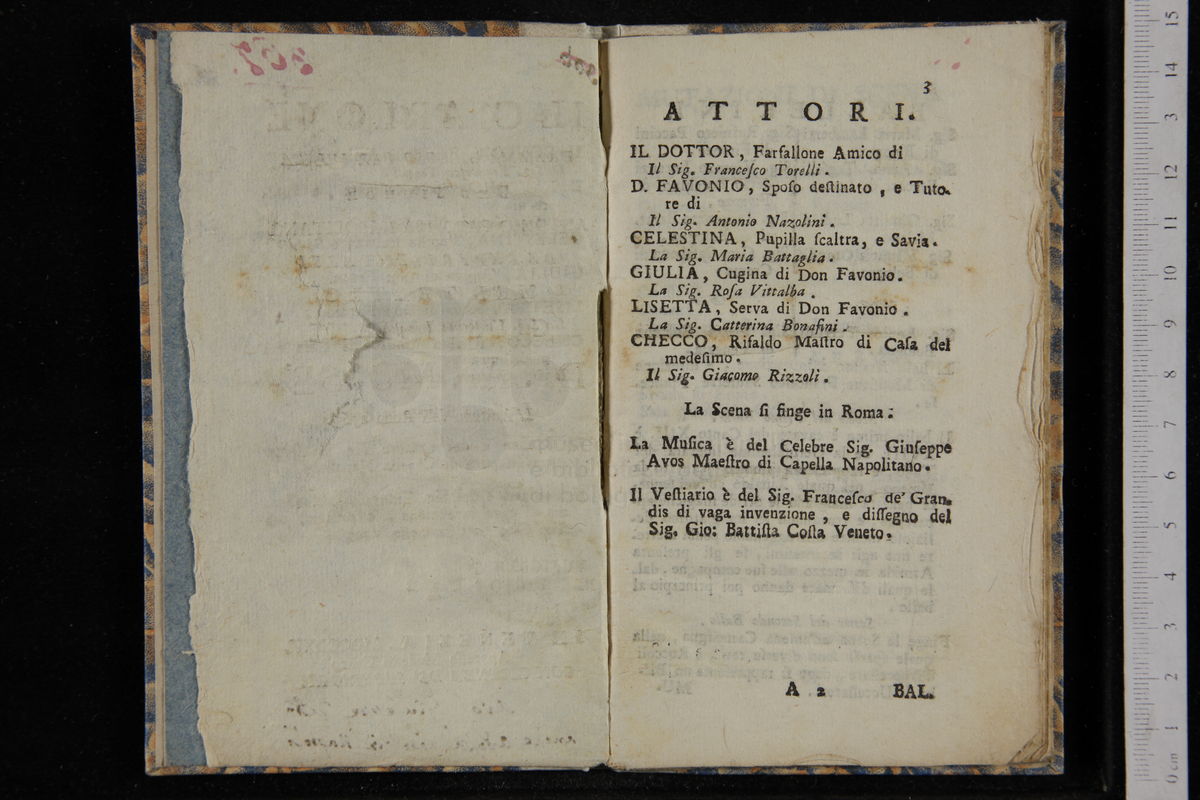 3
ATTORI.
IL DOTTOR, Farfallone Amico di
Il Sig. Franceſco Torelli.
D. FAVONIO, Spoſo deſtinato, e Tuto-
re di
Il Sig. Antonio Nazolini.
CELESTINA, Pupilla ſcaltra, e Savia.
La Sig. Maria Battaglia.
GIULIA, Cugina di Don Favonio.
La Sig. Roſa Vittalba.
LISETTA, Serva di Don Favonio.
La Sig. Catterina Bonafini.
CHECCO, Riſaldo Maſtro di Caſa del
medeſimo.
Il Sig. Giacomo Rizzoli.
La Scena ſi finge in Roma.
La Muſica è del Celebre Sig. Giuſeppe
Avos Maeſtro di Capella Napolitano.
Il Veſtiario è del Sig. Franceſco de' Gran-
dis di vaga invenzione, e diſſegno del
Sig. Gio: Battiſta Coſta Veneto.
A 2 BAL.
15
14
13
12
11
10
9
8
7
6
5
4
3
2
1
0 cm